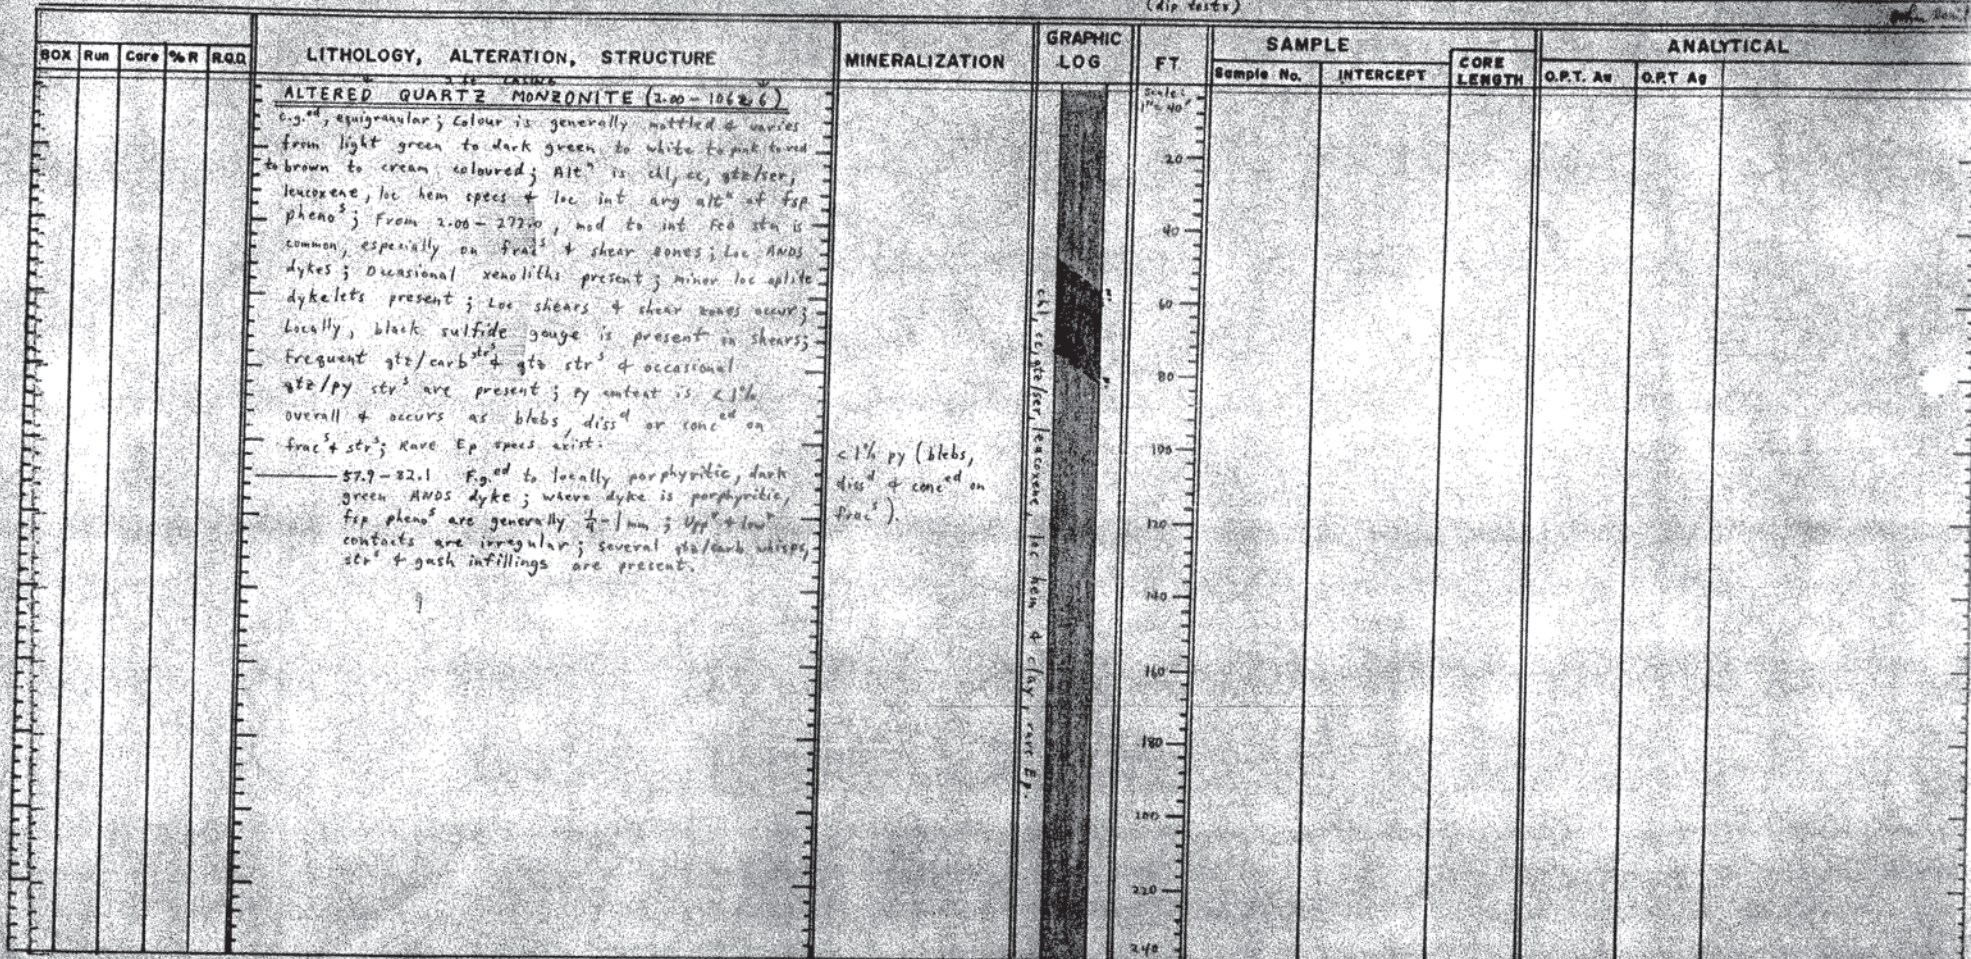 (dip tests)
BOX Run Core %R R.Q.D.
LITHOLOGY, ALTERATION, STRUCTURE
MINERALIZATION
GRAPHIC LOG
FT
SAMPLE
Sample No. INTERCEPT
CORE LENGTH
ANALYTICAL
O.P.T. Au O.P.T Ag
2 ft casing
ALTERED QUARTZ MONZONITE (2.00 - 1062.6)
c.g.ed, equigranular; Colour is generally mottled & varies
from light green to dark green to white to pink to red
to brown to cream coloured; Altn is chl, cc, qtz/ser,
leucoxene, loc hem specs & loc int arg altn of fsp
phenos; From 2.00 - 272.0, mod to int FeO stn is
common, especially on fracs & shear zones; Loc ANDS
dykes; Occasional xenoliths present; minor loc aplite
dykelets present; Loc shears & shear zones occur;
Locally, black sulfide gouge is present in shears;
Frequent qtz/carb strs & qtz strs & occasional
qtz/py strs are present; Py content is <1%
overall & occurs as blebs, dissd or conced on
fracs & strs; Rare Ep specs exist.
57.9 - 82.1 F.g.ed to locally porphyritic, dark
green ANDS dyke; where dyke is porphyritic,
fsp phenos are generally 1/4 - 1 mm; Uppr & lowr
contacts are irregular; several qtz/carb whisps,
strs & gash infillings are present.
<1% py (blebs,
dissd & conced on
fracs).
chl, cc, qtz/ser, leucoxene, loc hem & clay, rare Ep.
Scale:
1" = 40'
20
40
60
80
100
120
140
160
180
200
220
240